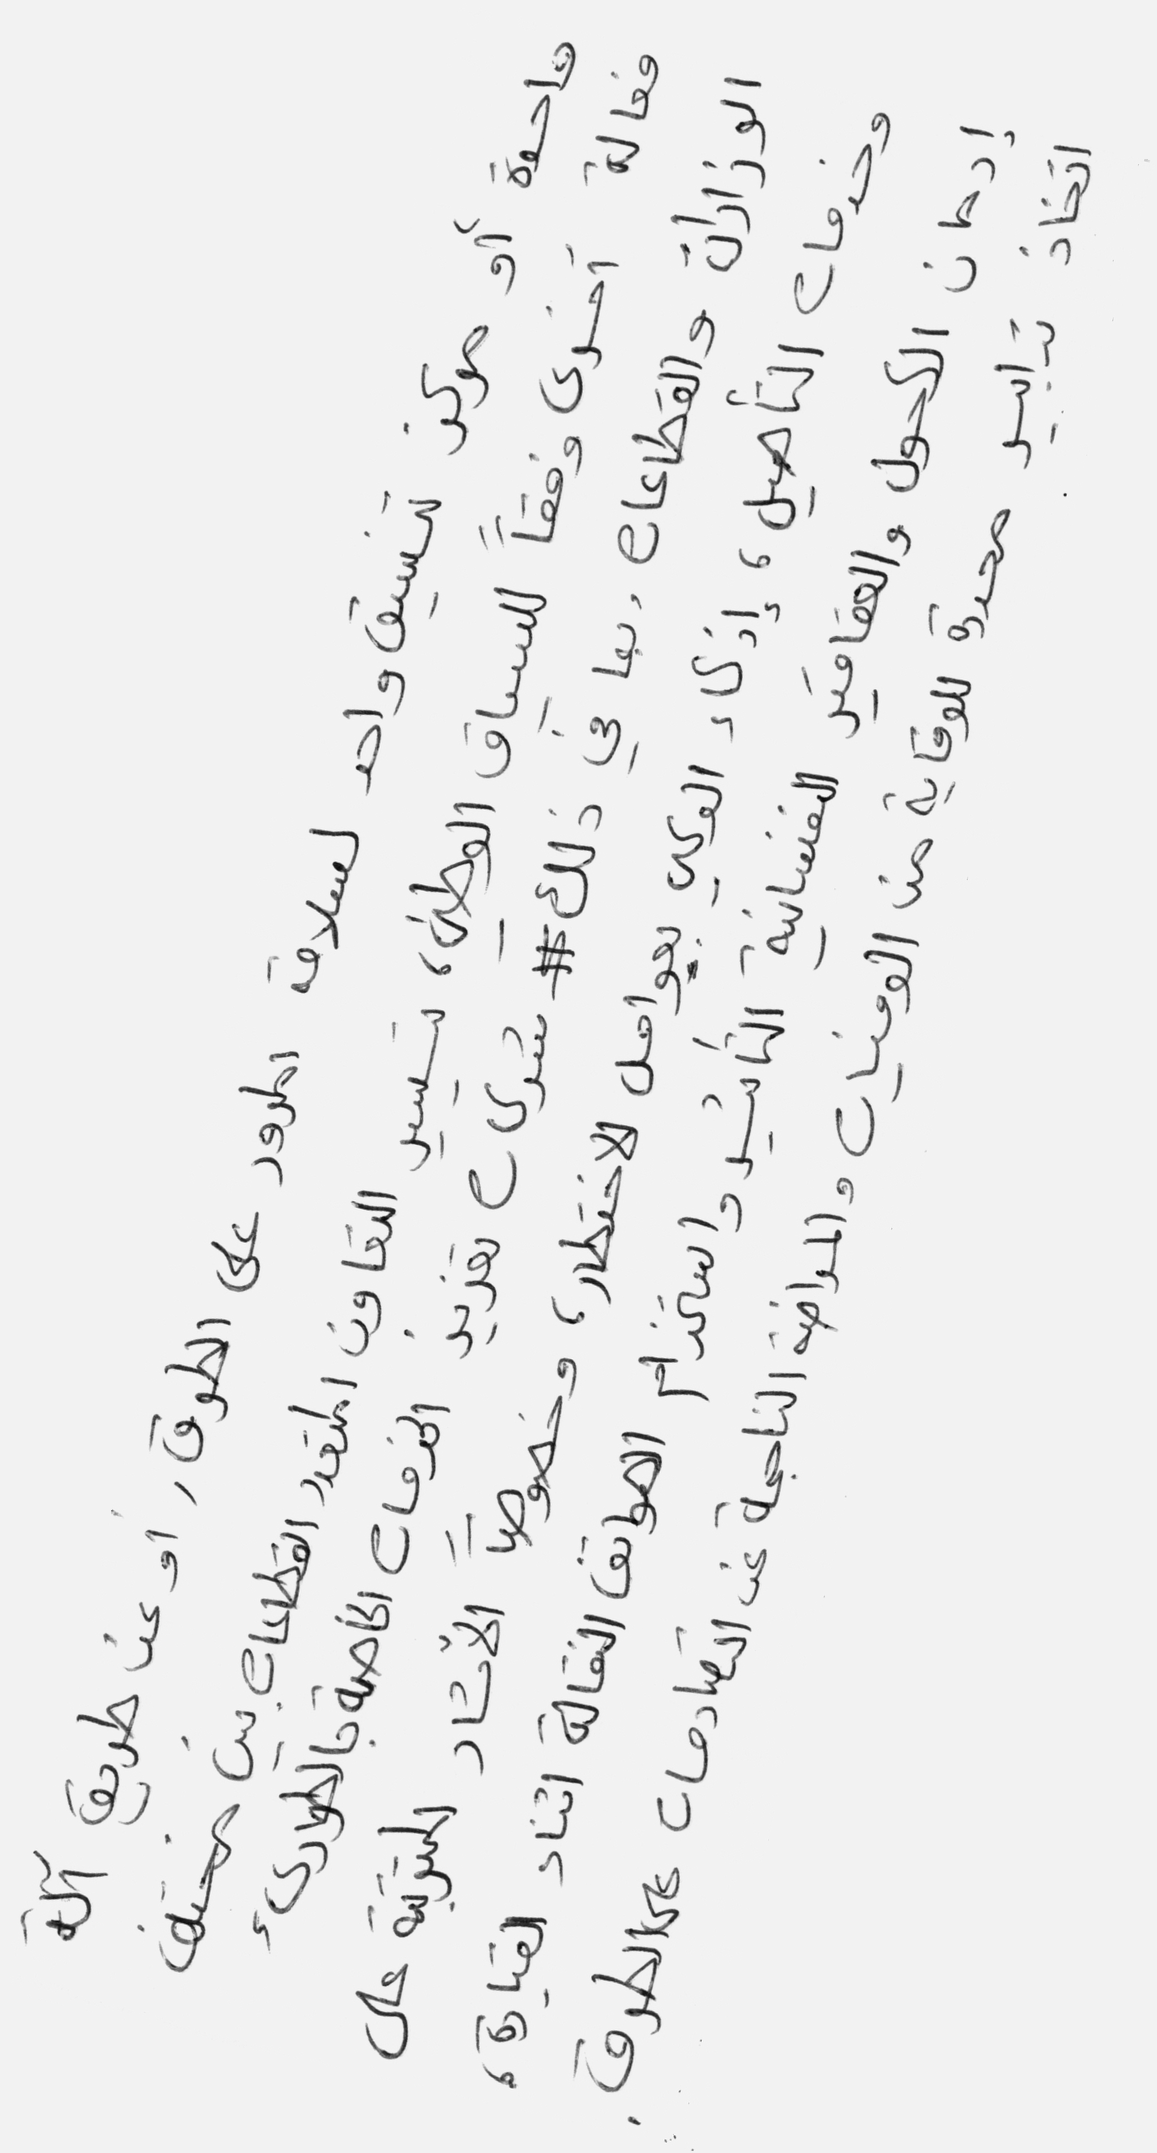 واحدة أو مركز تنسيق واحد لسلامة المرور على الطرق، أو عن طريق آلية
فعالة أخرى وفقاً للسياق الوطني، تيسير التعاون المتعدد القطاعات بين مختلف
الوزارات والقطاعات، بما في ذلك شركات تعزيز الخدمات الخاصة بالطوارئ
وخدمات التأهيل، إذكاء الوعي بعوامل الاختطار، وخصوصاً الآثار المترتبة على
إدمان الكحول والعقاقير النفسانية التأثير واستخدام الهواتف النقالة اثناء القيادة،
اتخاذ تدابير محددة للوقاية من الوفيات والمراضة الناجمة عن التصادمات على الطرق.